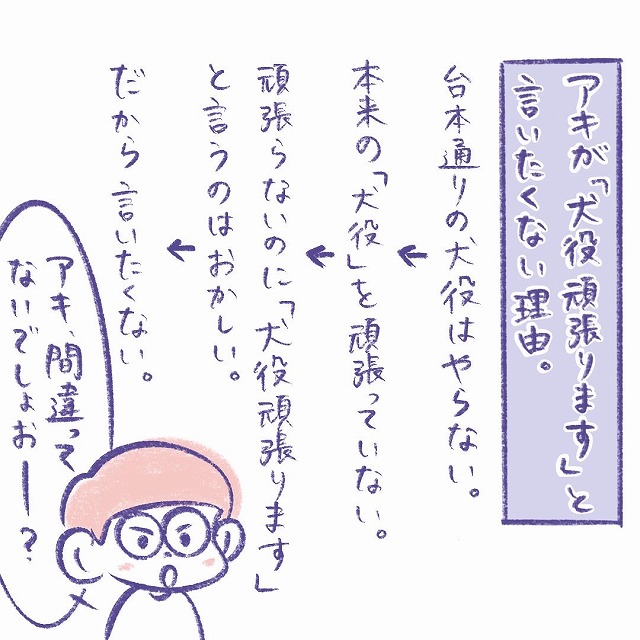 アキが「犬役頑張ります」と
言いたくない理由。
台本通りの犬役はやらない。
本来の「犬役」を頑張っていない。
頑張らないのに「犬役頑張ります」
と言うのはおかしい。
だから言いたくない。
アキ、間違って
ないでしょおー？